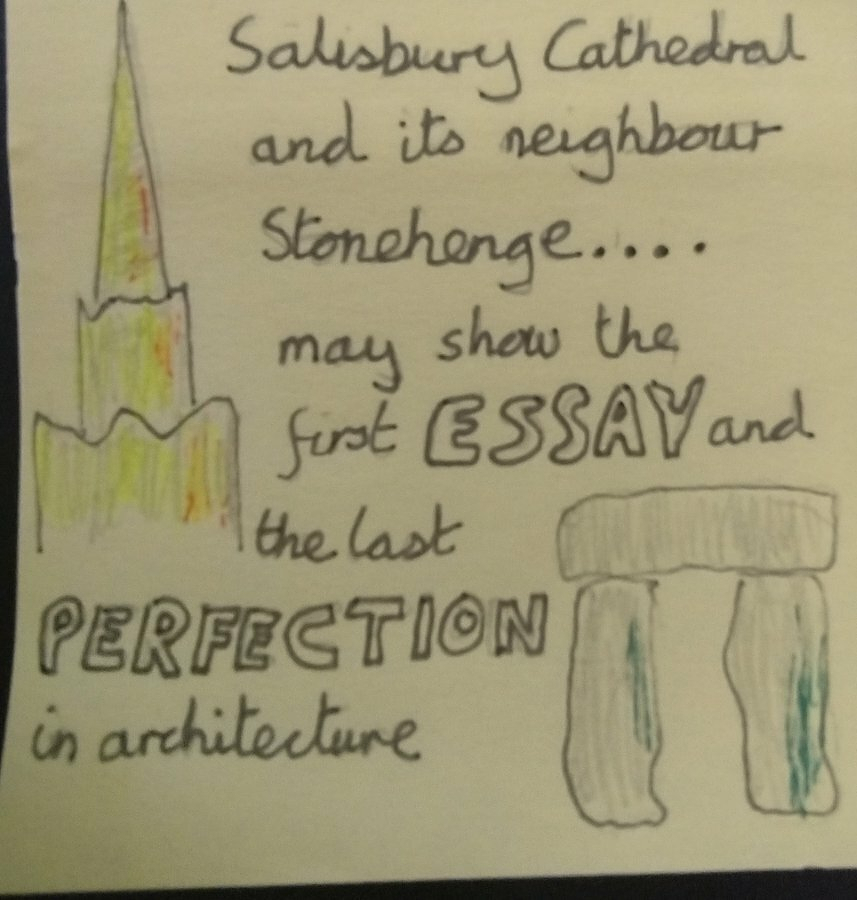 Salisbury Cathedral
and its neighbour
Stonehenge....
may show the
first ESSAY and
the last
PERFECTION
in architecture